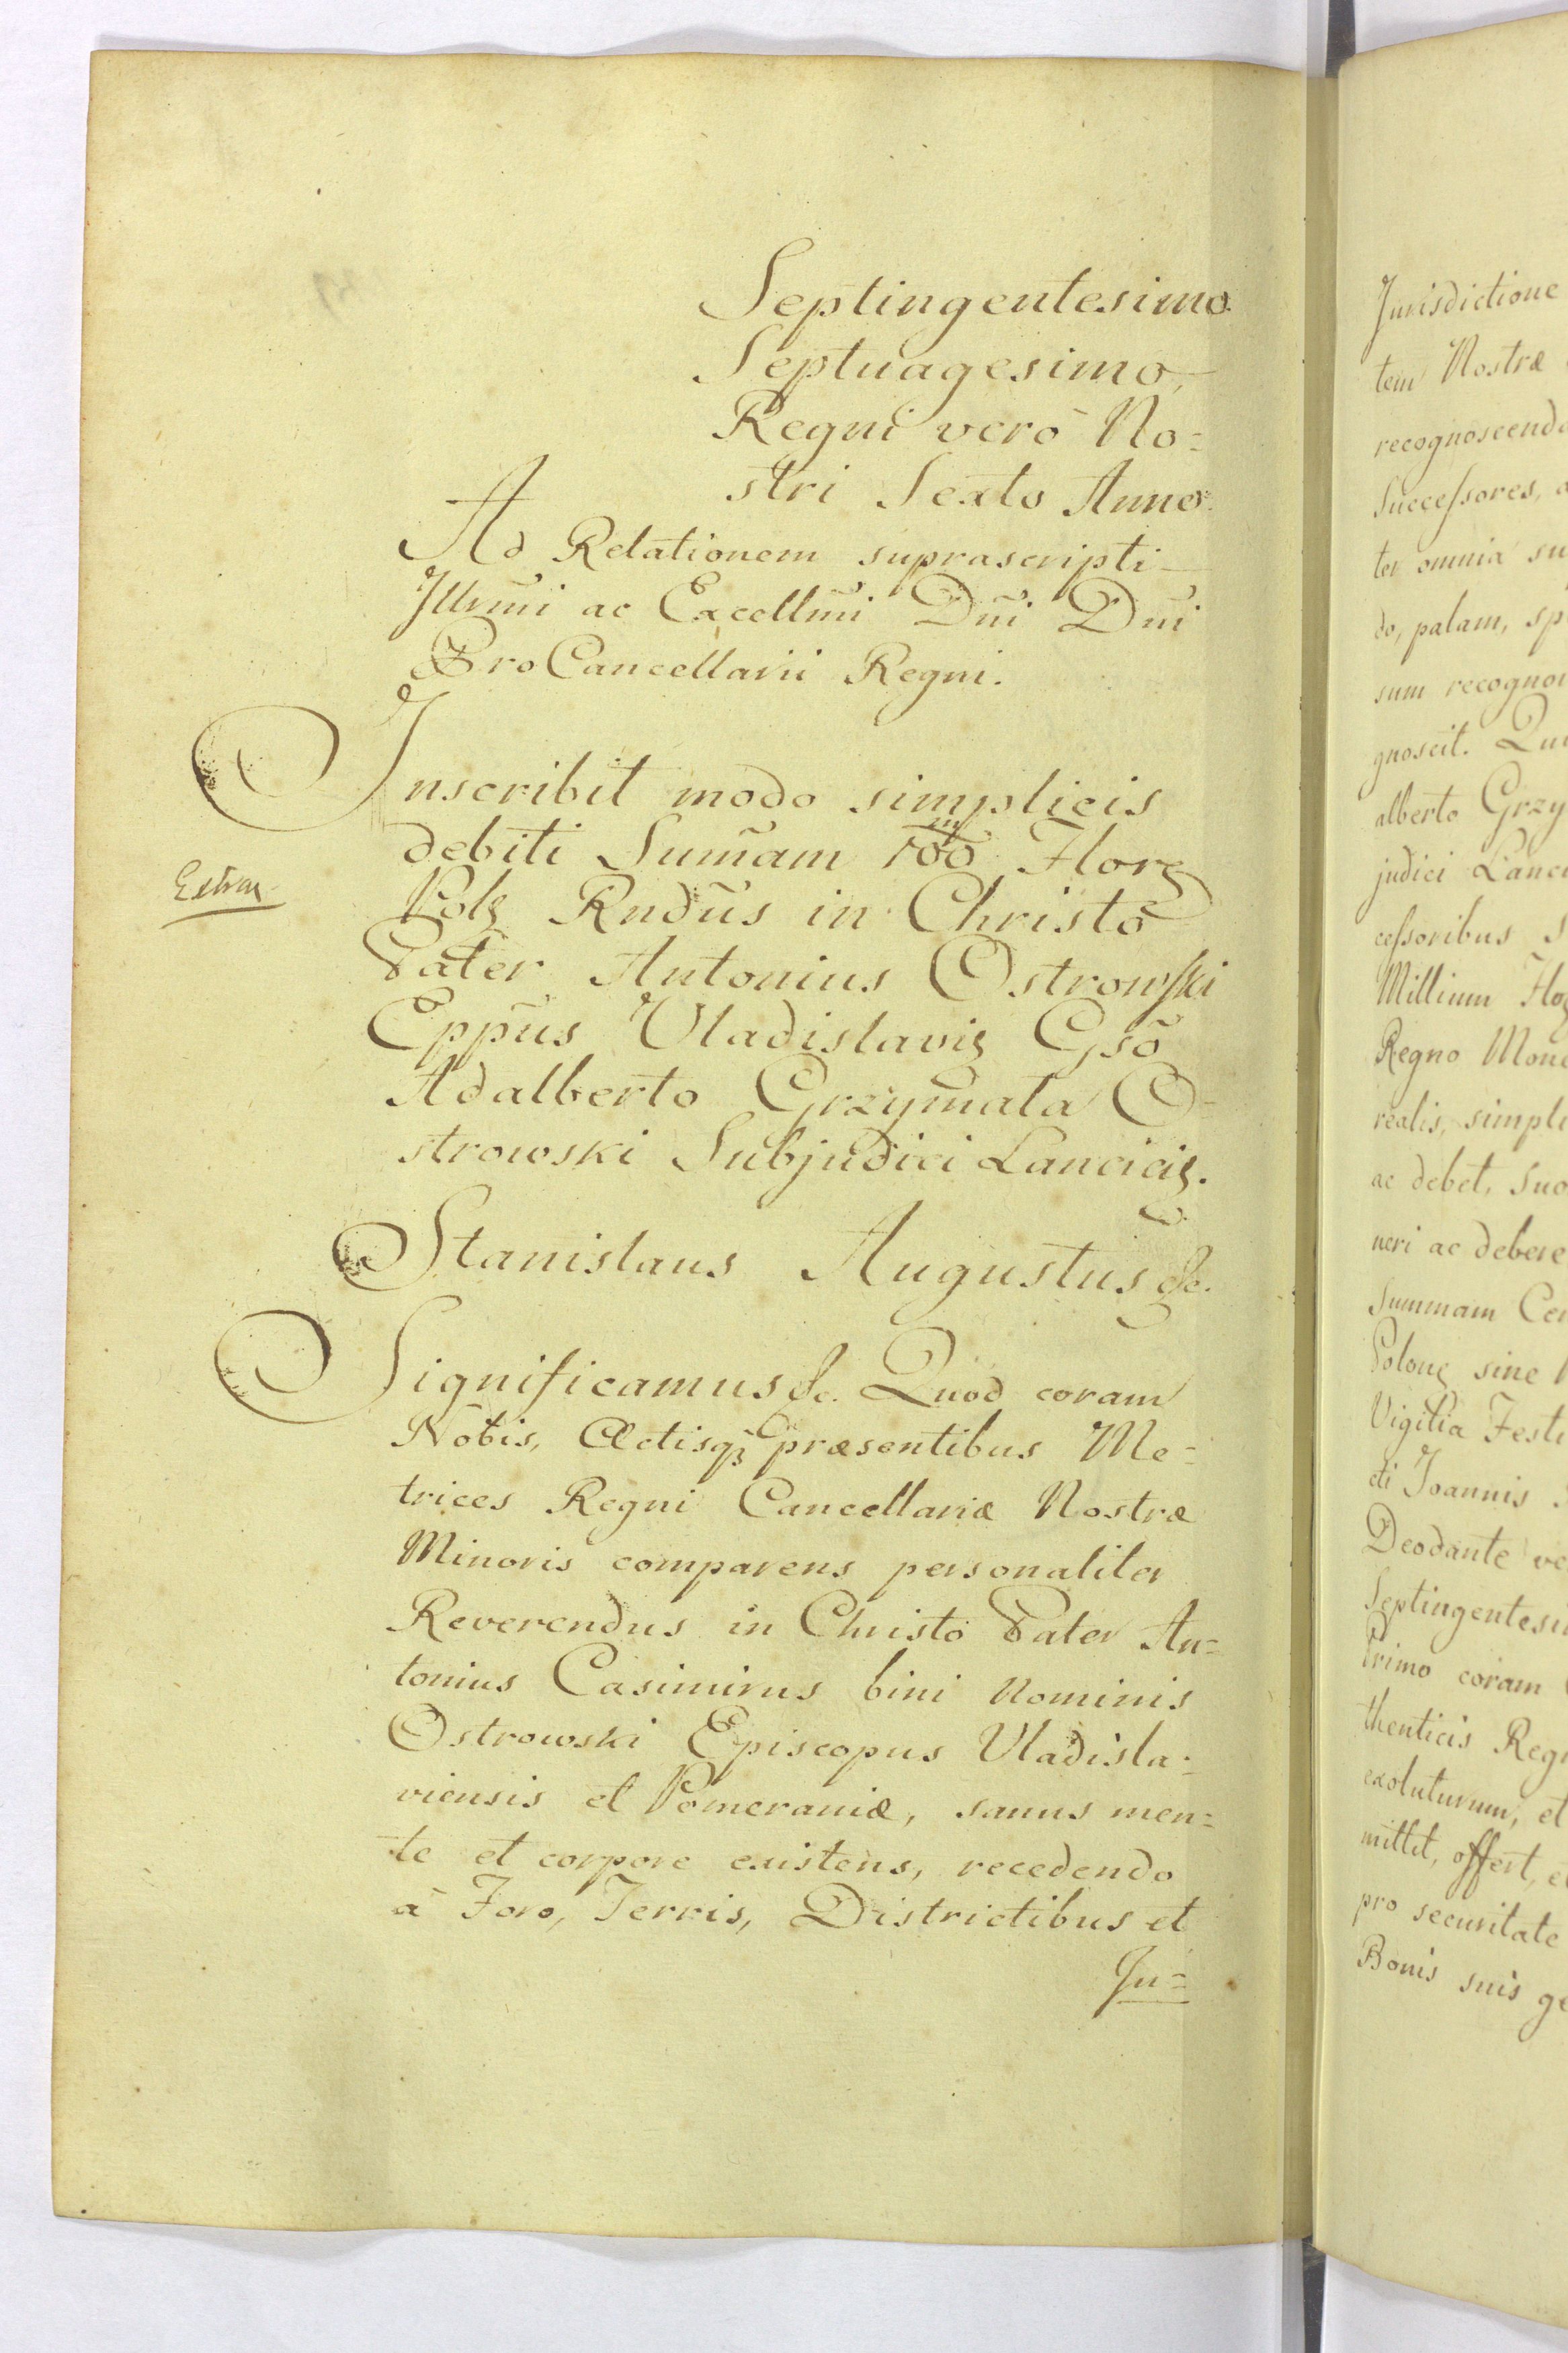 Septingentesimo
Septuagesimo,
Regni verò No=
stri Sexto Anno.
Ad Relationem suprascripti
Illrm̃i ac Excellm̃i Dñi Dñi
ProCancellarii Regni.
Inscribit modo simplicis
debiti Sum̃am 100 m Floreg
Extrax
Polg Rndũs in Christo
Pater Antonius Ostrowski
Eppũs Vladislavig Gsõ
Adalberto Grzymała O-
strowski Subjudici Lancicig.
Stanislaus Augustus &c.
Significamus &c. Quod coram
Nobis, Actisqȝ præsentibus Me=
trices Regni Cancellariæ Nostræ
Minoris comparens personaliter
Reverendus in Christo Pater An=
tonius Casimirus bini Nominis
Ostrowski Episcopus Vladisla=
viensis et Pomeraniæ, sanus men=
te et corpore existens, recedendo
à Foro, Terris, Districtibus et
Ju=
Jurisdictione
tem Nostræ
recognoscendo
Successores,
ter omnia su
do, palam,
sum recogno
gnoscit.
alberto Grzy
judici Lanci
cessoribus
Millium
Regno Mone
realis, simpli
ac debet, suo
neri ac debere
Summam Cen
Polong sine
Vigilia Festi
cti Joannis
Deodante
Septingentesi
Primo coram
thenticis Regn
exoluturum, et
mittit, offert,
pro securitate
Bonis suis ge